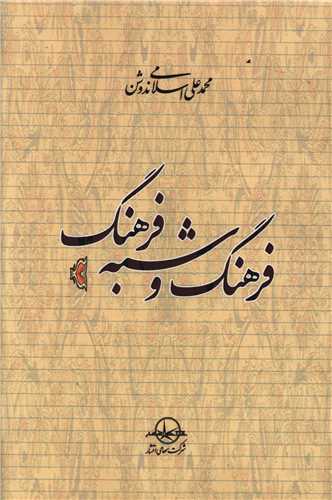 محمدعلی اسلامی ندوشن
فرهنگ و شبه فرهنگ
شرکت سهامی انتشار